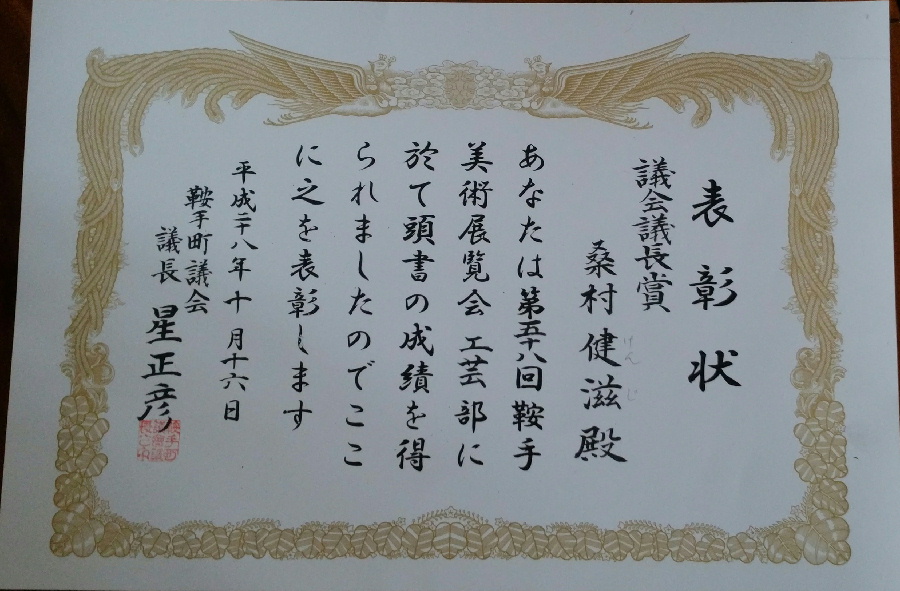 表彰状
議会議長賞
桑村健滋殿
けんじ
あなたは第五十八回鞍手
美術展覧会工芸部に
於て頭書の成績を得
られましたのでここ
に之を表彰します
平成二十八年十月十六日
鞍手町議会
議長 星正彦